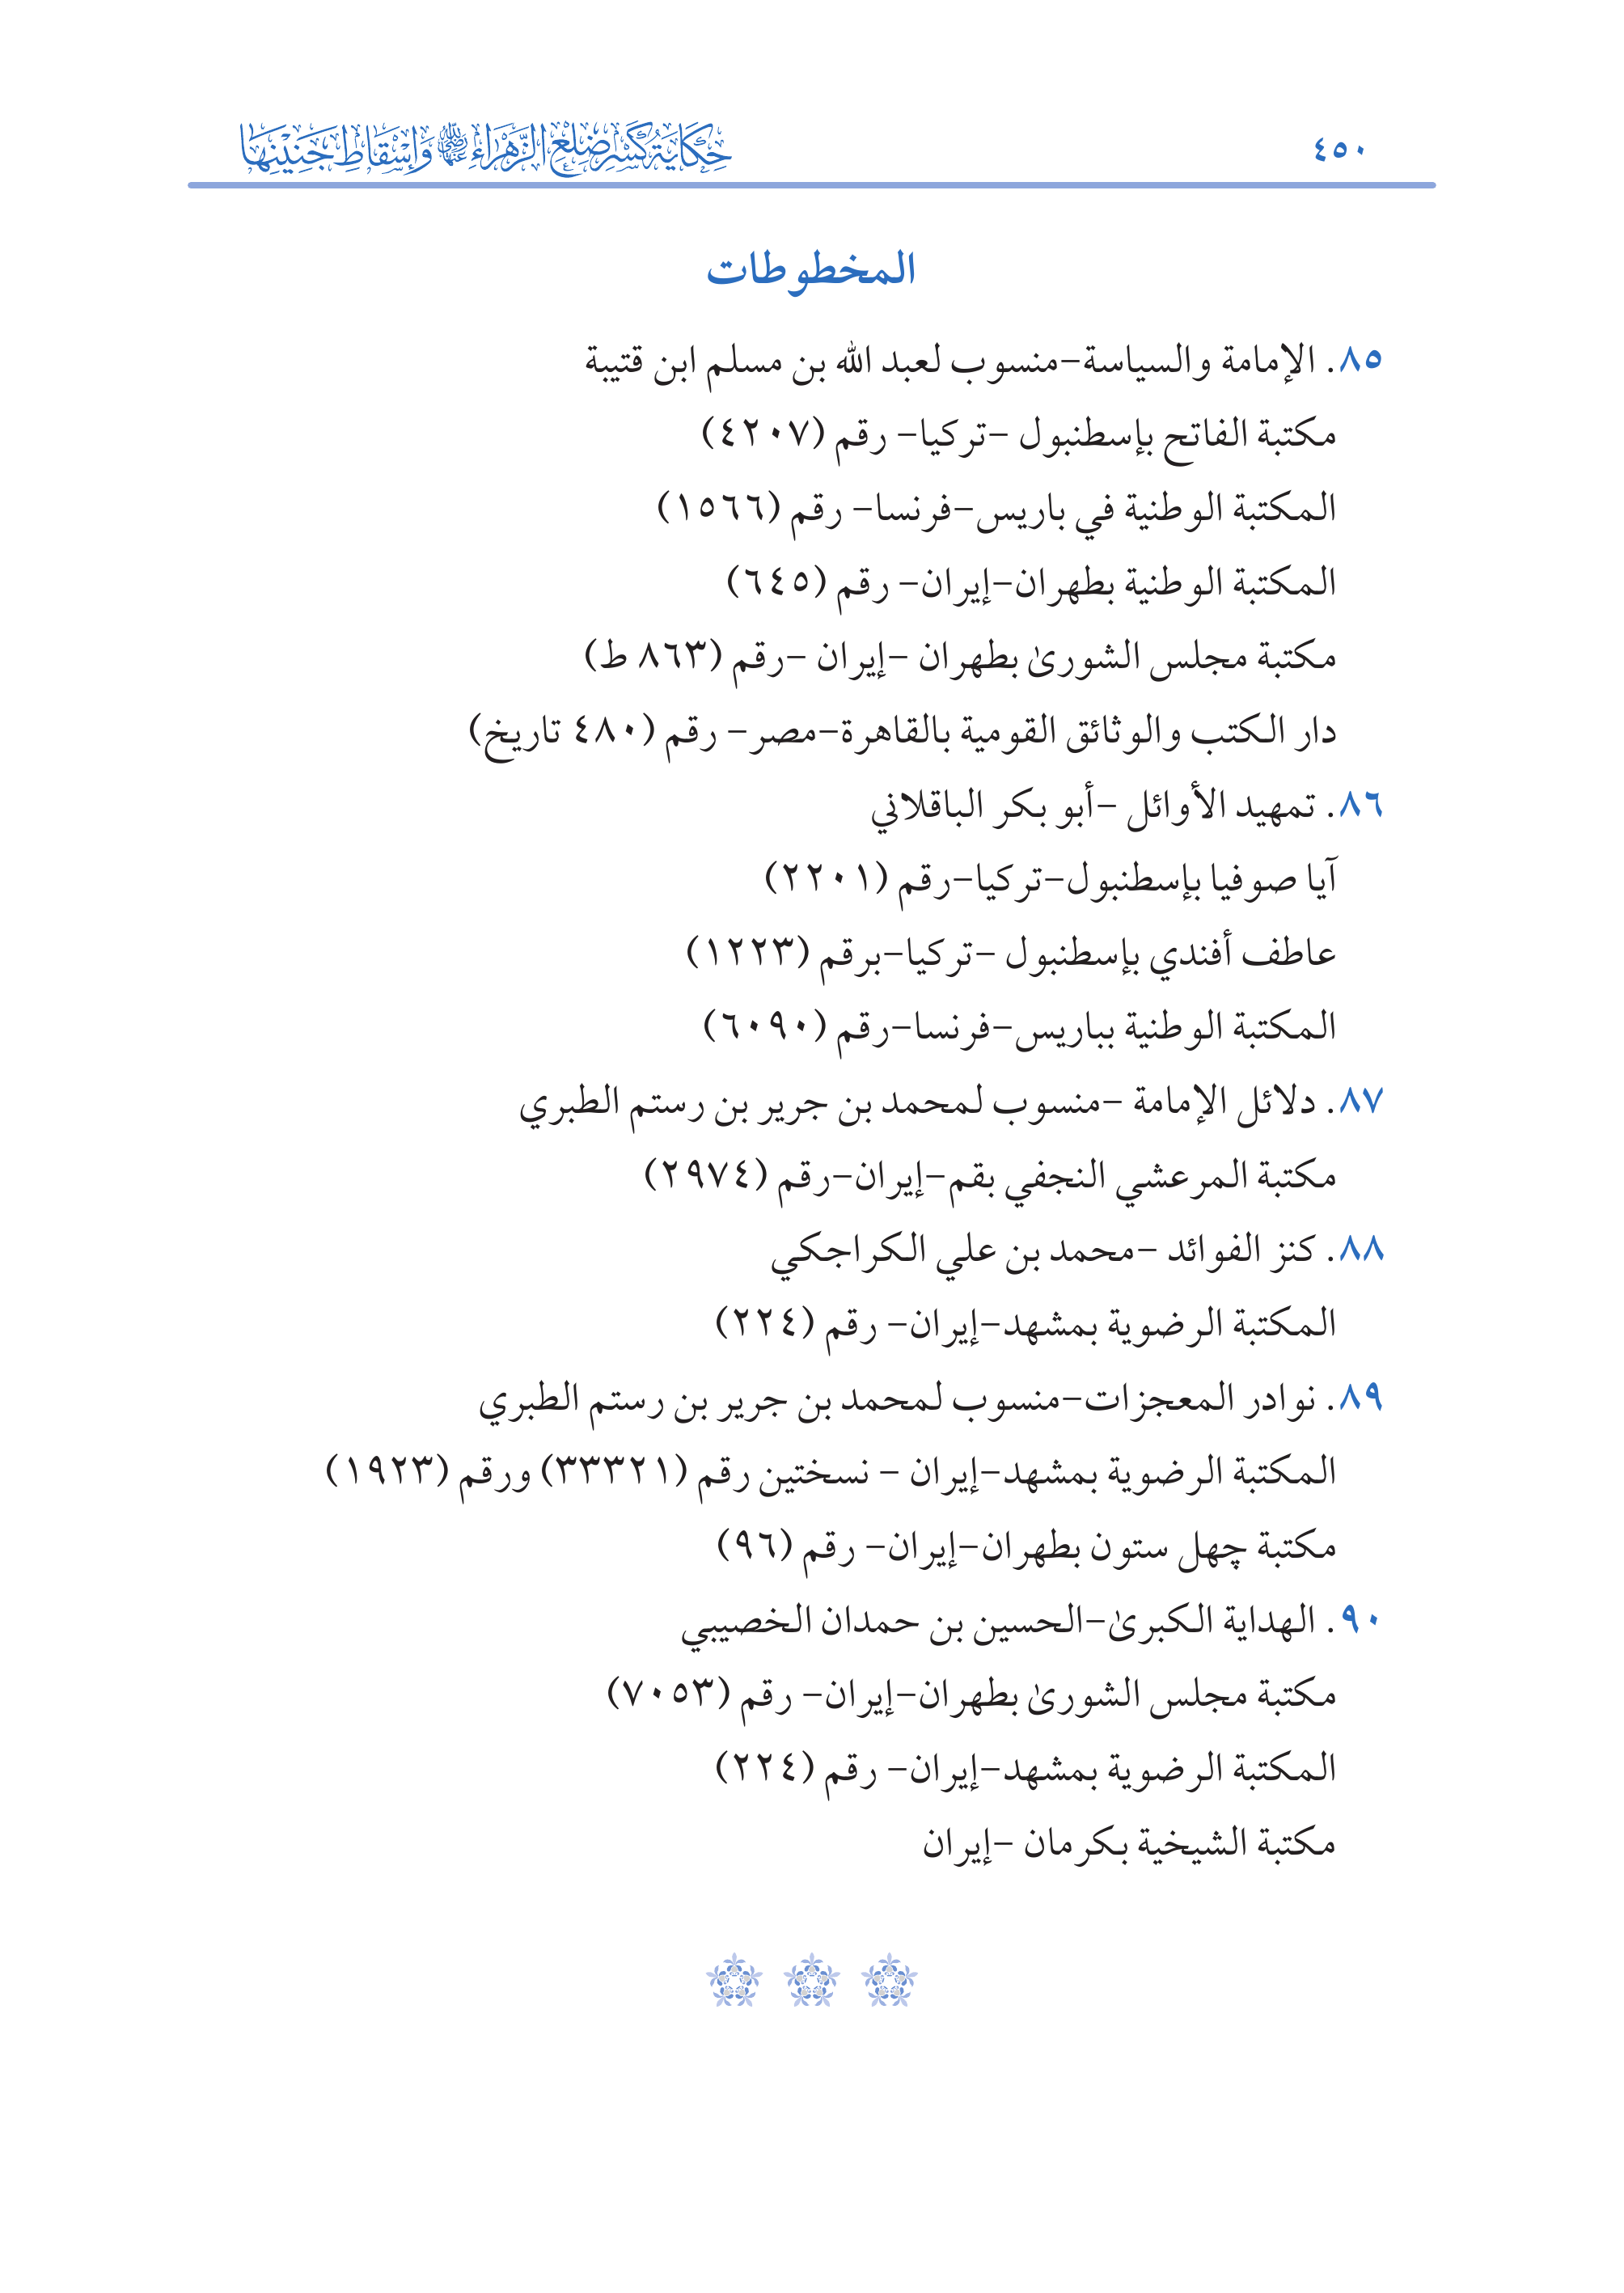 ٤٥٠
حِكَايَةُ كَسْرِ ضِلْعِ الزَّهْرَاءِ رضي الله عنها وَإِسْقَاطِ جَنِيْنِهَا
المخطوطات
٨٥. الإمامة والسياسة-منسوب لعبد الله بن مسلم ابن قتيبة
مكتبة الفاتح بإسطنبول -تركيا- رقم (٤٢٠٧)
المكتبة الوطنية في باريس-فرنسا- رقم (١٥٦٦)
المكتبة الوطنية بطهران-إيران- رقم (٦٤٥)
مكتبة مجلس الشورىٰ بطهران -إيران -رقم (٨٦٣ ط)
دار الكتب والوثائق القومية بالقاهرة-مصر- رقم (٤٨٠ تاريخ)
٨٦. تمهيد الأوائل -أبو بكر الباقلاني
آيا صوفيا بإسطنبول-تركيا-رقم (٢٢٠١)
عاطف أفندي بإسطنبول -تركيا-برقم (١٢٢٣)
المكتبة الوطنية بباريس-فرنسا-رقم (٦٠٩٠)
٨٧. دلائل الإمامة -منسوب لمحمد بن جرير بن رستم الطبري
مكتبة المرعشي النجفي بقم-إيران-رقم (٢٩٧٤)
٨٨. كنز الفوائد -محمد بن علي الكراجكي
المكتبة الرضوية بمشهد-إيران- رقم (٢٢٤)
٨٩. نوادر المعجزات-منسوب لمحمد بن جرير بن رستم الطبري
المكتبة الرضوية بمشهد-إيران - نسختين رقم (٣٣٣٢١) ورقم (١٩٢٣)
مكتبة چهل ستون بطهران-إيران- رقم (٩٦)
٩٠. الهداية الكبرىٰ-الحسين بن حمدان الخصيبي
مكتبة مجلس الشورىٰ بطهران-إيران- رقم (٧٠٥٣)
المكتبة الرضوية بمشهد-إيران- رقم (٢٢٤)
مكتبة الشيخية بكرمان -إيران